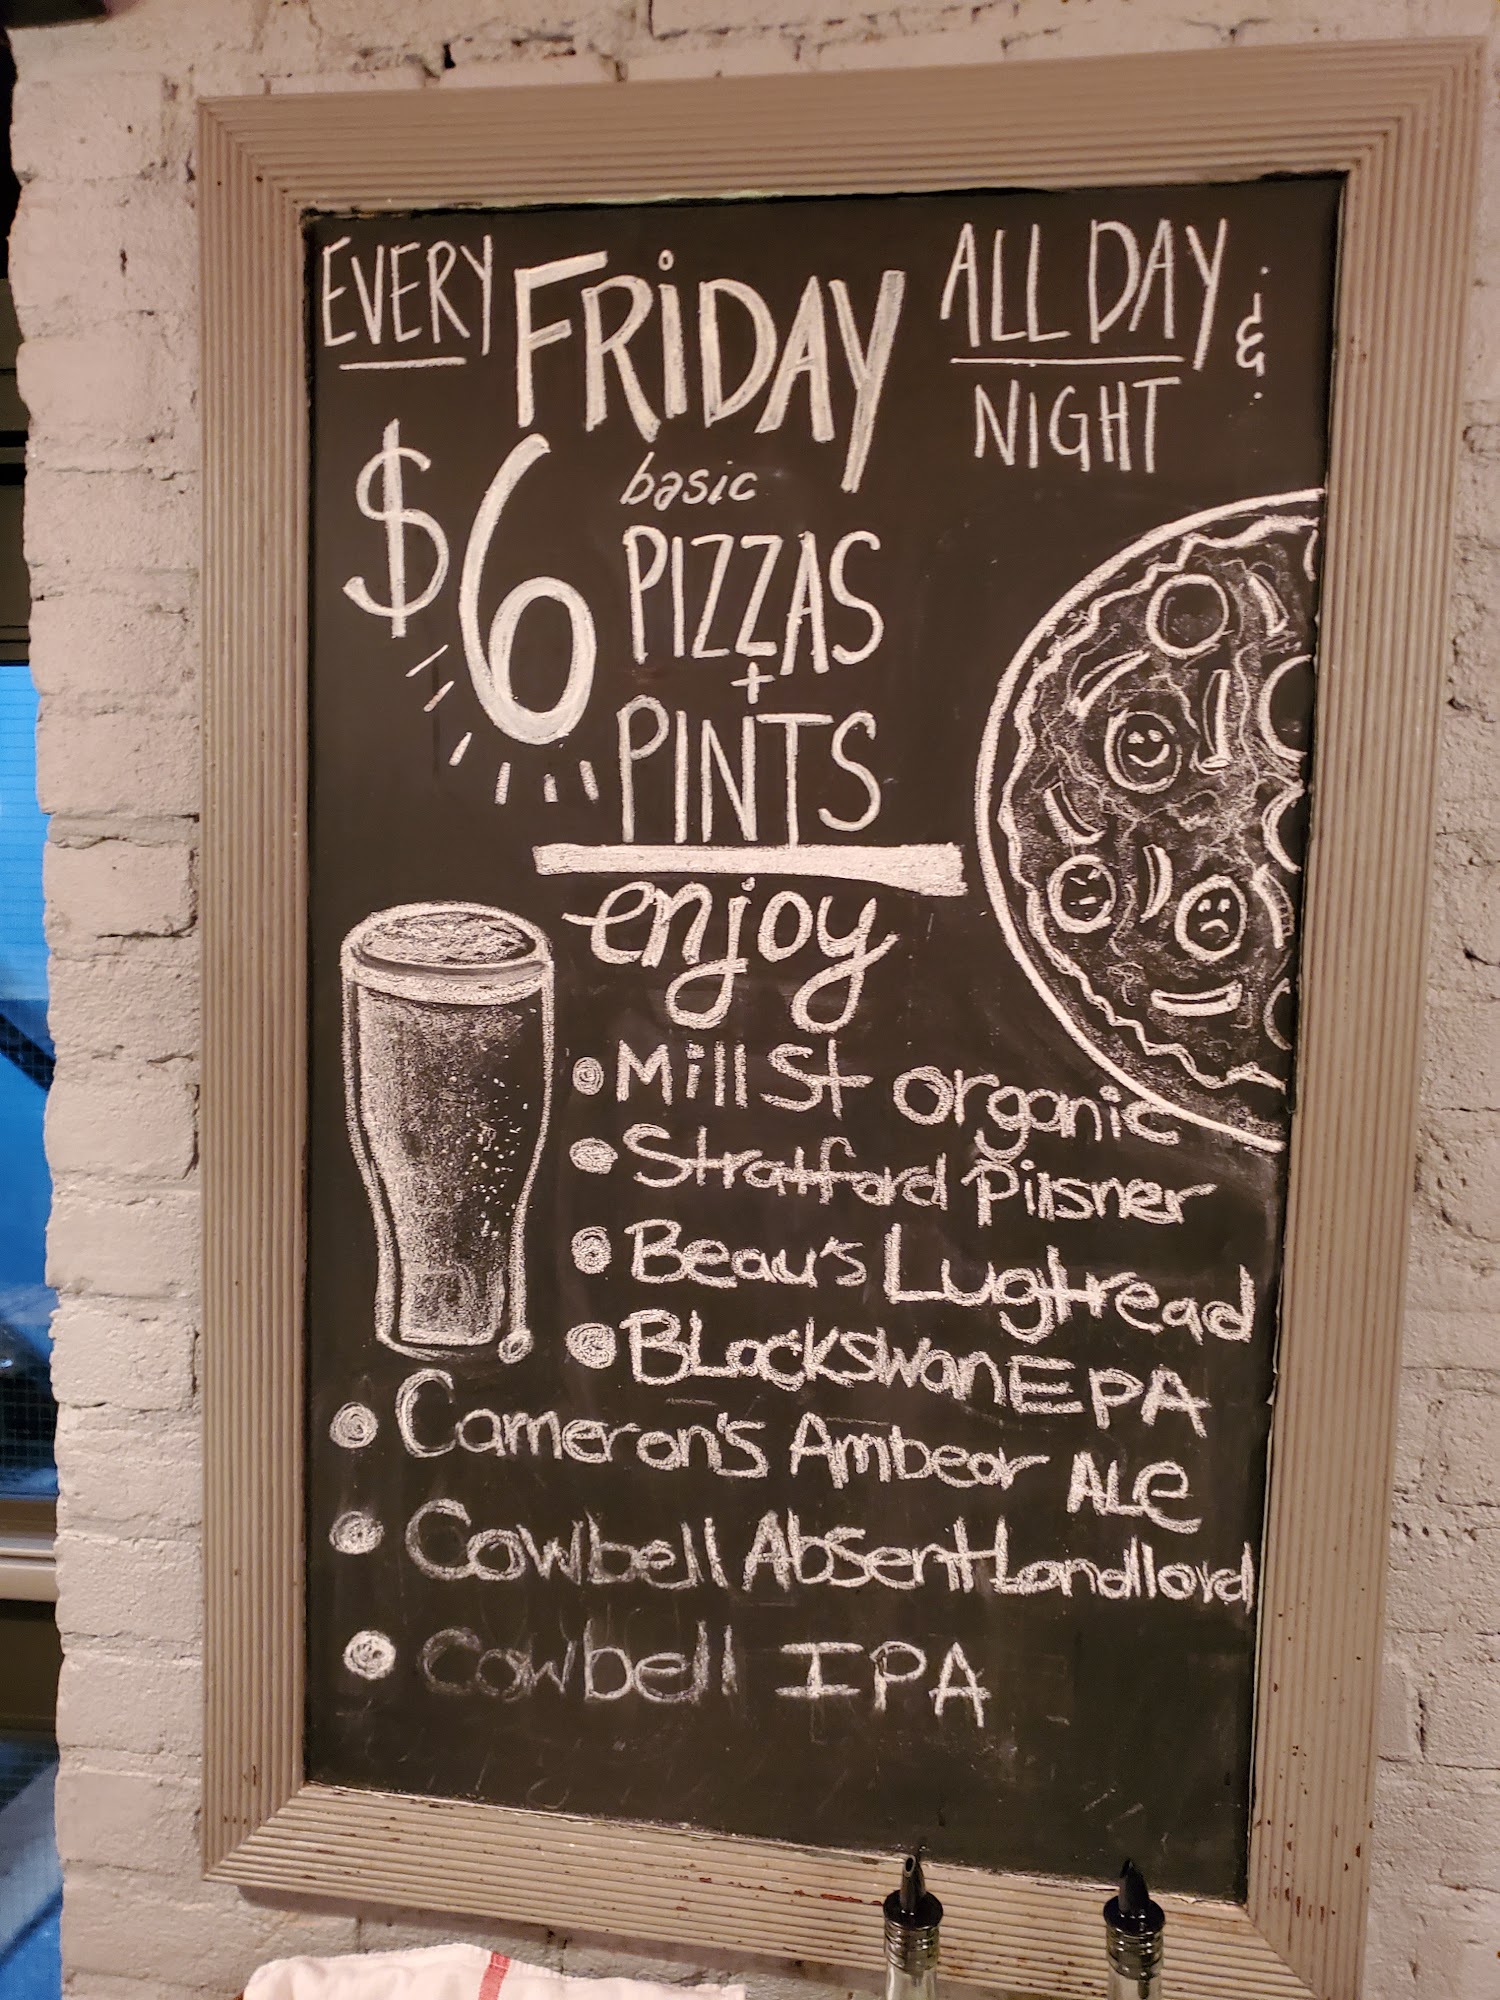 EVERY FRiDAY ALL DAY &
NIGHT
$6 basic
PIZZAS
+
PINTS
enjoy
Mill St organic
Stratford Pilsner
Beau's Lugtread
BLackswan EPA
Cameron's Ambear ALe
Cowbell Absent Landlord
Cowbell IPA